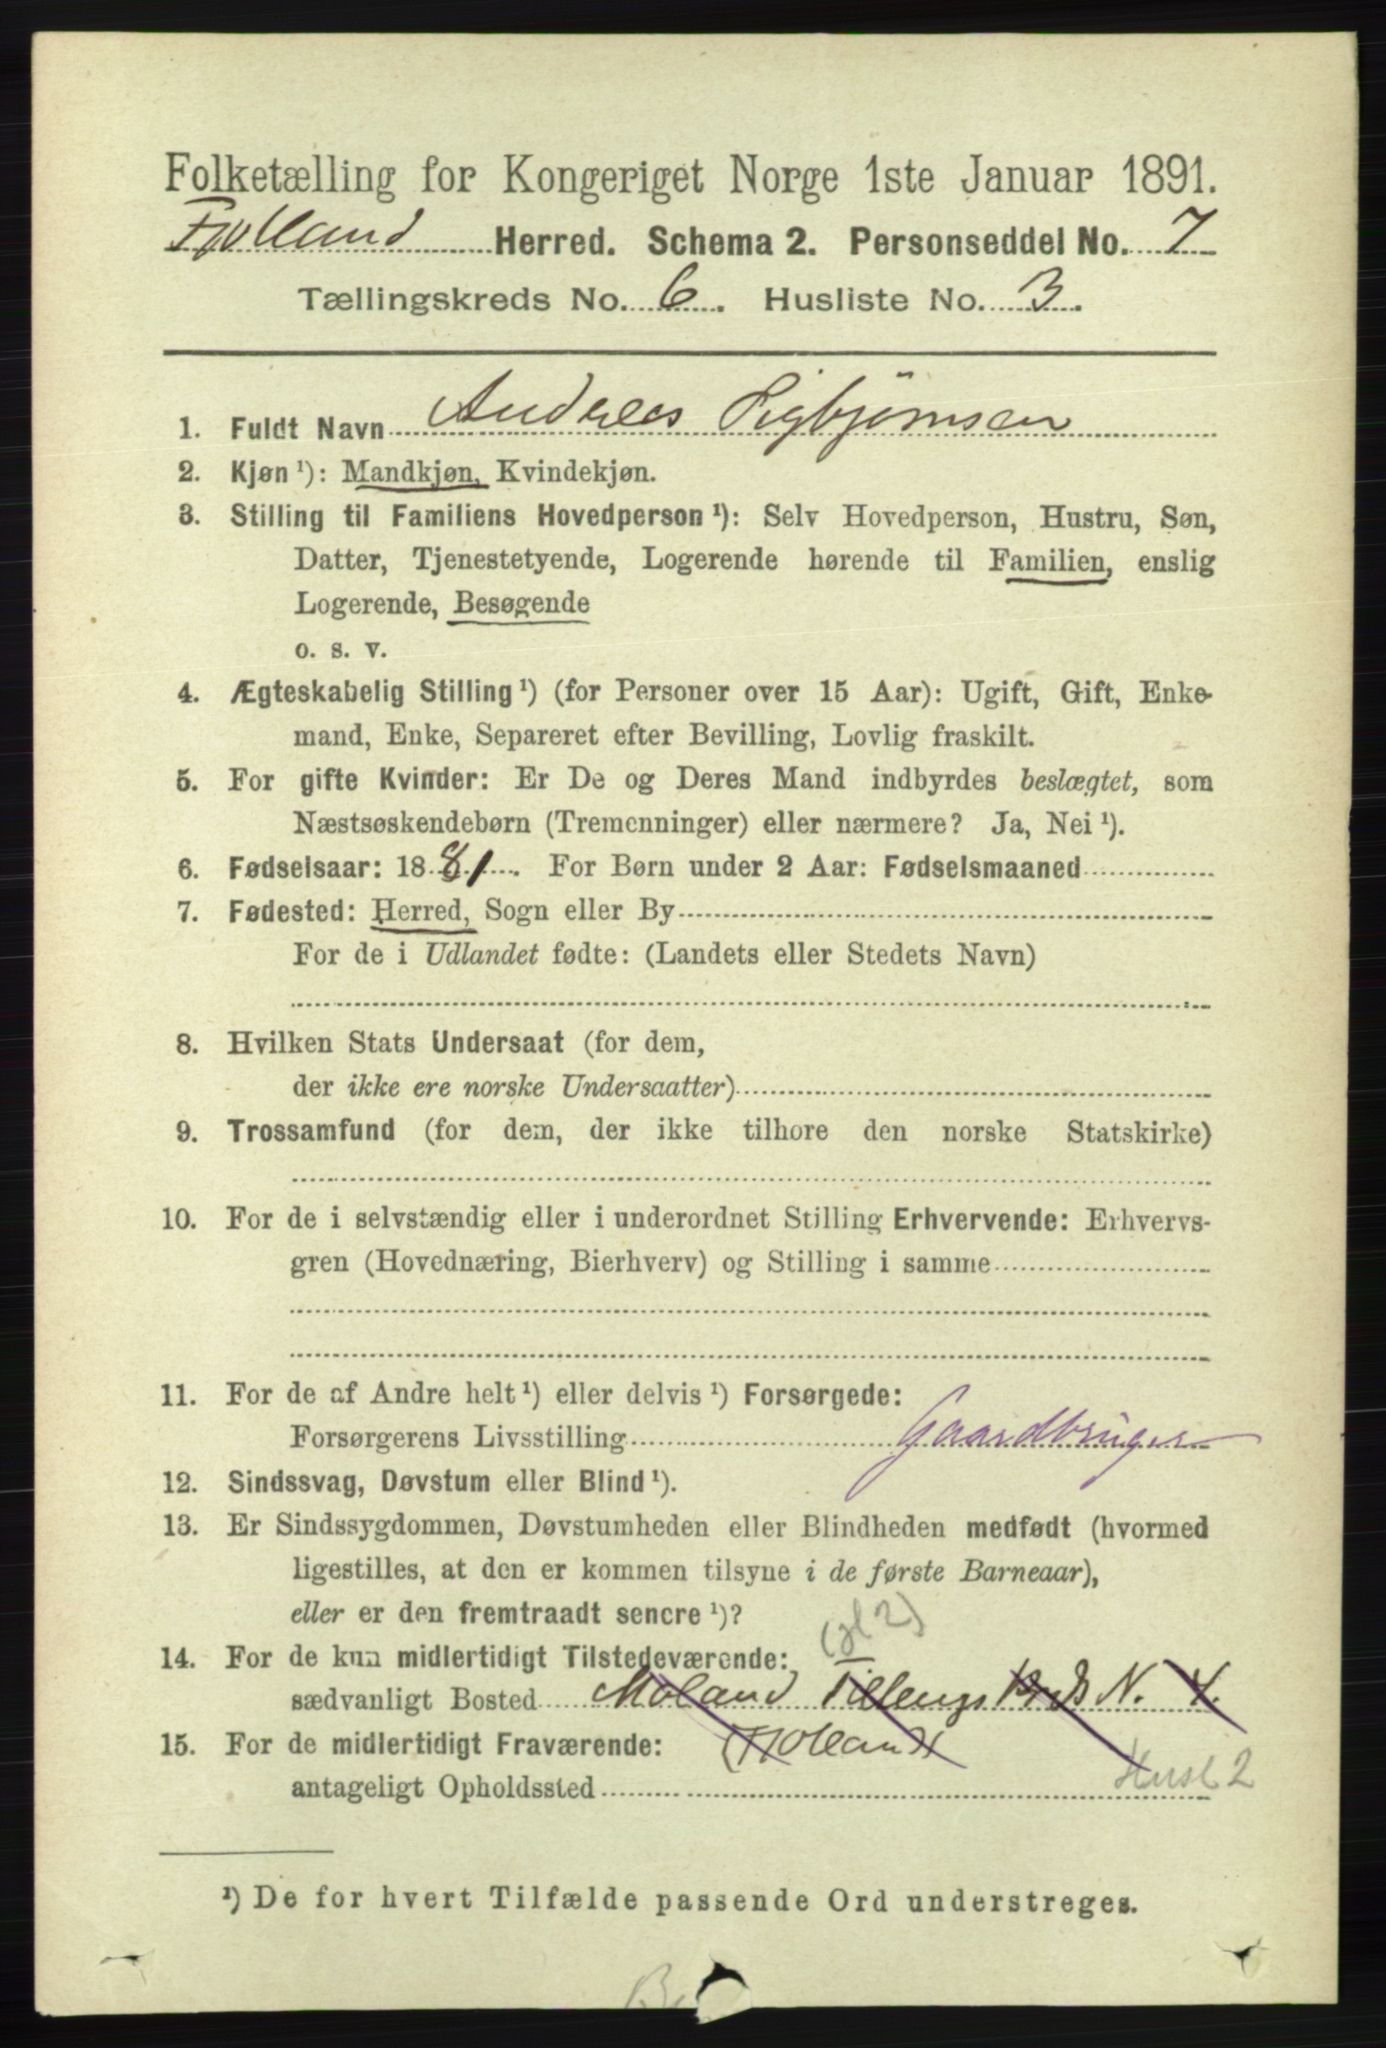 Folketælling for Kongeriget Norge 1ste Januar 1891.
Fjolland Herred. Schema 2. Personseddel No. 7
Tællingskreds No. 6. Husliste No. 3.
1. Fuldt Navn Andreas Sigbjørnsen
2. Kjøn¹): Mandkjøn, Kvindekjøn.
3. Stilling til Familiens Hovedperson¹): Selv Hovedperson, Hustru, Søn,
Datter, Tjenestetyende, Logerende hørende til Familien, enslig
Logerende, Besøgende
o. s. v.
4. Ægteskabelig Stilling¹) (for Personer over 15 Aar): Ugift, Gift, Enke-
mand, Enke, Separeret efter Bevilling, Lovlig fraskilt.
5. For gifte Kvinder: Er De og Deres Mand indbyrdes beslægtet, som
Næstsøskendebørn (Tremenninger) eller nærmere? Ja, Nei¹).
6. Fødselsaar: 1881. For Børn under 2 Aar: Fødselsmaaned
7. Fødested: Herred, Sogn eller By
For de i Udlandet fødte: (Landets eller Stedets Navn)
8. Hvilken Stats Undersaat (for dem,
der ikke ere norske Undersaatter)
9. Trossamfund (for dem, der ikke tilhøre den norske Statskirke)
10. For de i selvstændig eller i underordnet Stilling Erhvervende: Erhvervs-
gren (Hovednæring, Bierhverv) og Stilling i samme
11. For de af Andre helt¹) eller delvis¹) Forsørgede:
Forsørgerens Livsstilling Gaardbruger
12. Sindssvag, Døvstum eller Blind¹).
13. Er Sindssygdommen, Døvstumheden eller Blindheden medfødt (hvormed
ligestilles, at den er kommen tilsyne i de første Barneaar),
eller er den fremtraadt senere¹)?
14. For de kun midlertidigt Tilstedeværende:
sædvanligt Bosted Moland N. 4.
15. For de midlertidigt Fraværende: (Fjolland
antageligt Opholdssted Husl 2
¹) De for hvert Tilfælde passende Ord understreges.